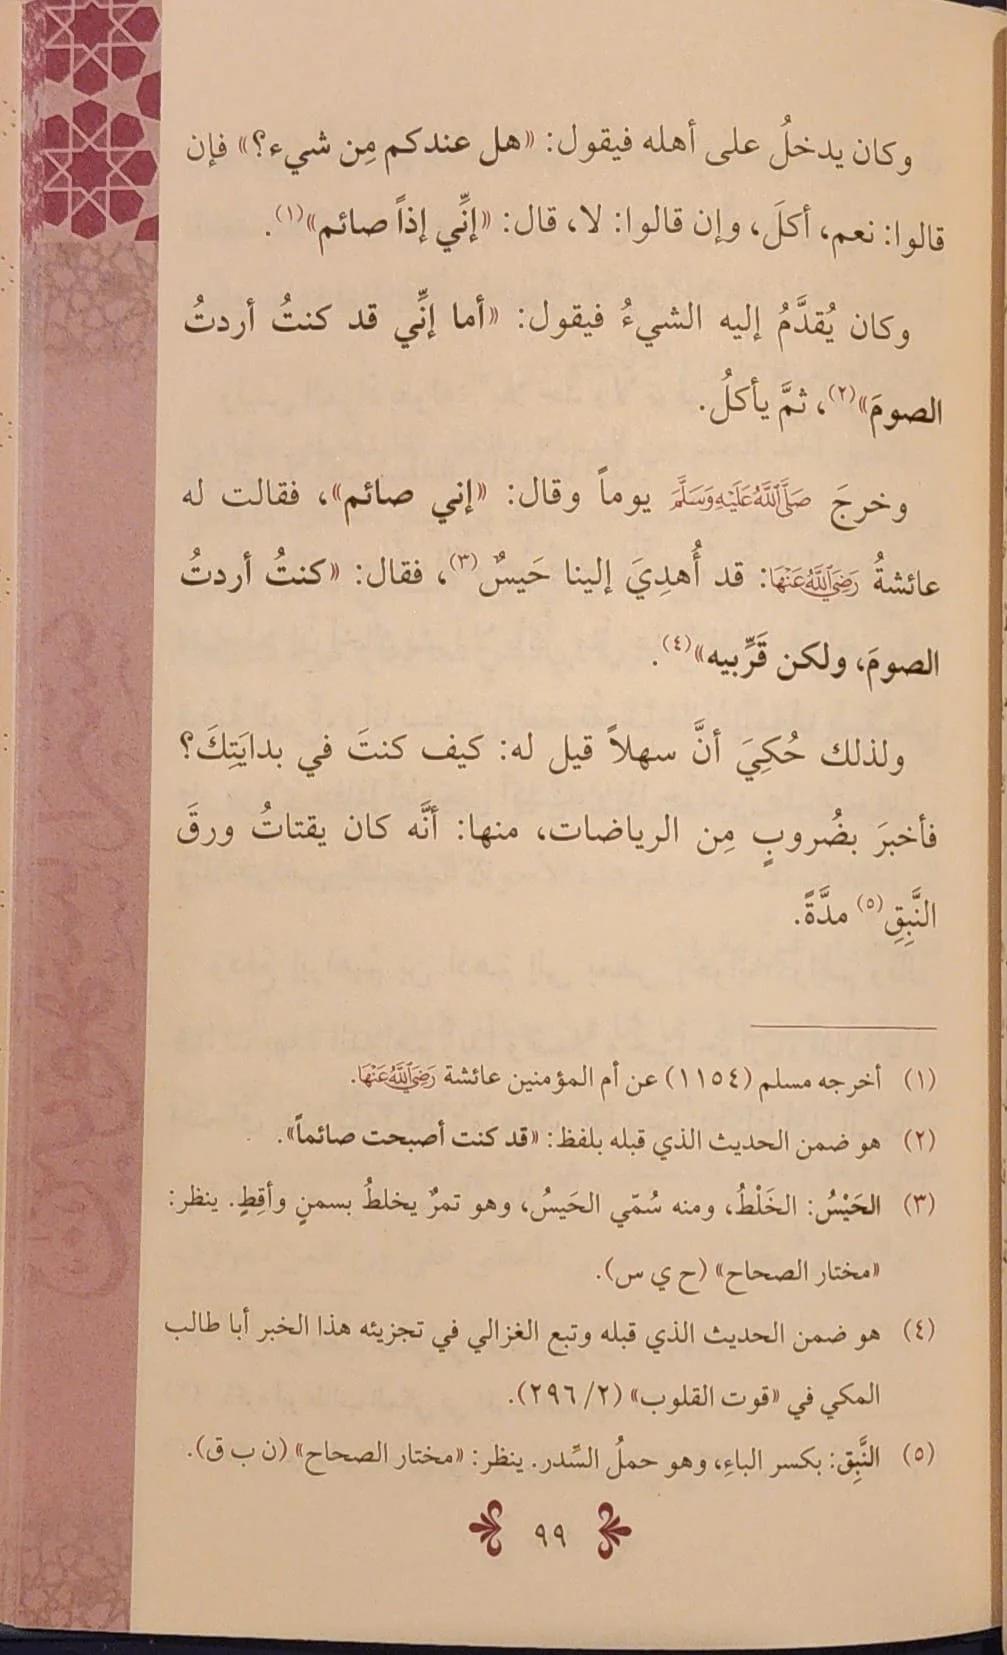 وكان يدخلُ على أهله فيقول: «هل عندكم مِن شيء؟» فإن
قالوا: نعم، أكلَ، وإن قالوا: لا، قال: «إنِّي إذاً صائم»(١).
وكان يُقدَّمُ إليه الشيءُ فيقول: «أما إنِّي قد كنتُ أردتُ
الصومَ»(٢)، ثمَّ يأكلُ.
وخرجَ صَلَّى اللَّهُ عَلَيْهِ وَسَلَّمَ يوماً وقال: «إني صائم»، فقالت له
عائشةُ رَضِيَ اللَّهُ عَنْهَا: قد أُهدِيَ إلينا حَيسٌ(٣)، فقال: «كنتُ أردتُ
الصومَ، ولكن قَرِّبيه»(٤).
ولذلك حُكِيَ أنَّ سهلاً قيل له: كيف كنتَ في بدايَتِكَ؟
فأخبرَ بضُروبٍ مِن الرياضات، منها: أنَّه كان يقتاتُ ورقَ
النَّبِقِ(٥) مدَّةً.
(١) أخرجه مسلم (١١٥٤) عن أم المؤمنين عائشة رَضِيَ اللَّهُ عَنْهَا.
(٢) هو ضمن الحديث الذي قبله بلفظ: «قد كنت أصبحت صائماً».
(٣) الحَيْسُ: الخَلْطُ، ومنه سُمّي الحَيسُ، وهو تمرٌ يخلطُ بسمنٍ وأقِطٍ. ينظر:
«مختار الصحاح» (ح ي س).
(٤) هو ضمن الحديث الذي قبله وتبع الغزالي في تجزيئه هذا الخبر أبا طالب
المكي في «قوت القلوب» (٢/ ٢٩٦).
(٥) النَّبِق: بكسر الباءِ، وهو حملُ السِّدر. ينظر: «مختار الصحاح» (ن ب ق).
٩٩